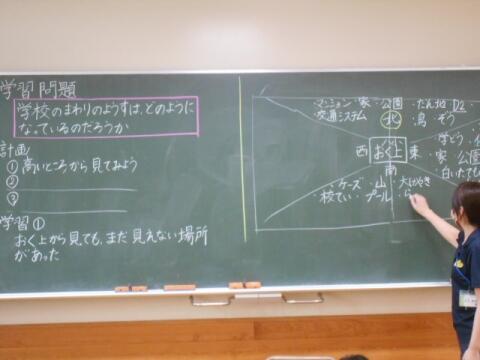 学習問題
学校のまわりのようすは、どのように
なっているのだろうか
計画
① 高いところから見てみよう
②
③
学習①
おく上から見ても、まだ見えない場所
があった
マンション・家・公園・だん地 D2
交通システム
北・鳥・ぞう
西 おく上 東
学どう
家・公園
白いたても
南
ケーズ・山・大けやき
校てい・プール・ら